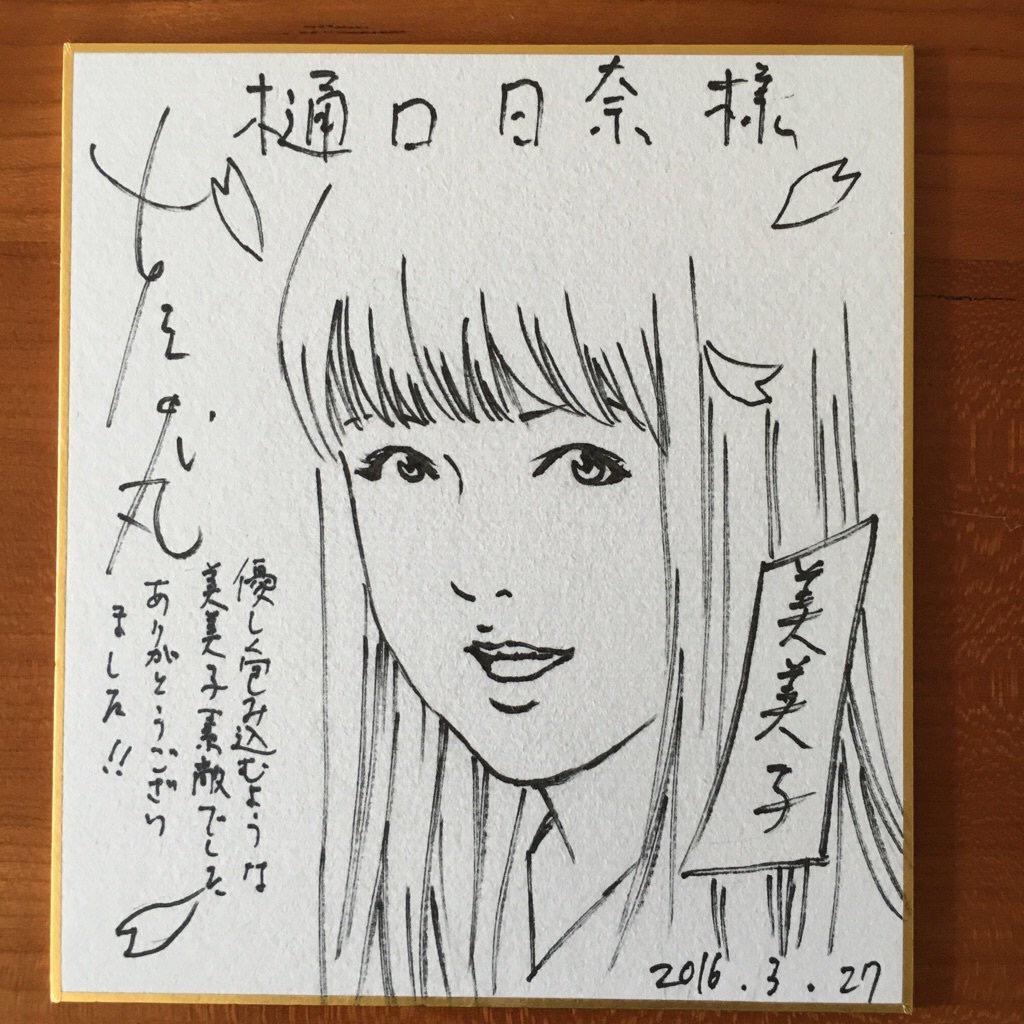 樋口日奈様
美美子
優しく包み込むような
美美子素敵でした
ありがとうござい
ました!!
2016.3.27